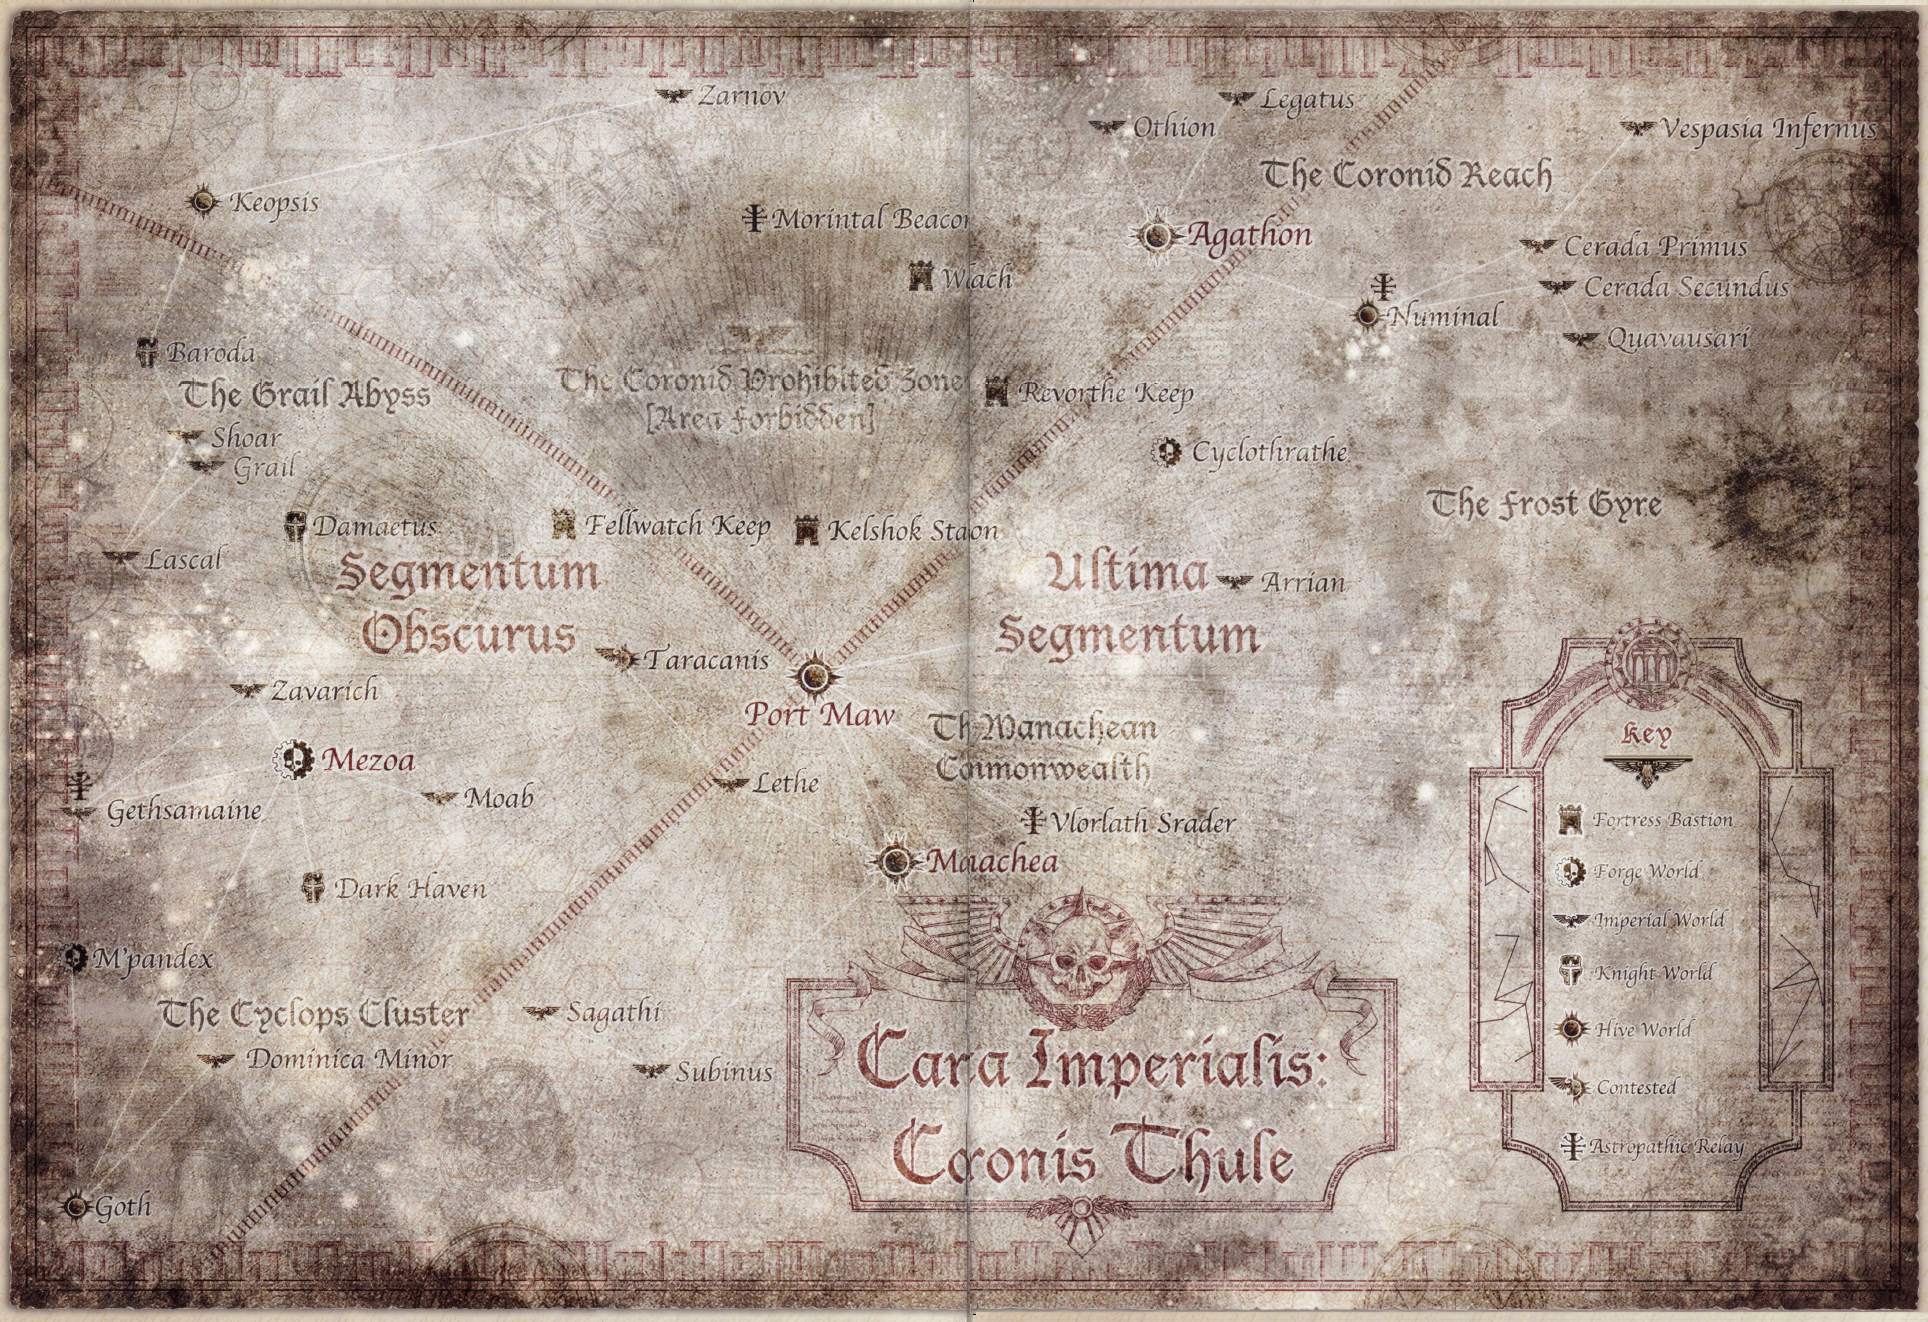 Zarnov
Legatus
Othion
Vespasia Infernus
The Coronid Reach
Keopsis
Morintal Beacon
Agathon
Cerada Primus
Wlach
Cerada Secundus
Numinal
Quavausari
Baroda
The Grail Abyss
The Coronid Prohibited Zone
[Area Forbidden]
Revorthe Keep
Shoar
Grail
Cyclothrathe
The Frost Gyre
Damaetus
Fellwatch Keep
Kelshok Staon
Lascal
Segmentum
Obscurus
Ultima
Segmentum
Arrian
Taracanis
Zavarich
Port Maw
Th Manachean
Commonwealth
Key
Mezoa
Moab
Lethe
Gethsamaine
Vlorlath Srader
Fortress Bastion
Maachea
Forge World
Dark Haven
Imperial World
M'pandex
Knight World
The Cyclops Cluster
Sagathi
Hive World
Dominica Minor
Subinus
Cara Imperialis:
Contested
Coronis Thule
Astropathic Relay
Goth